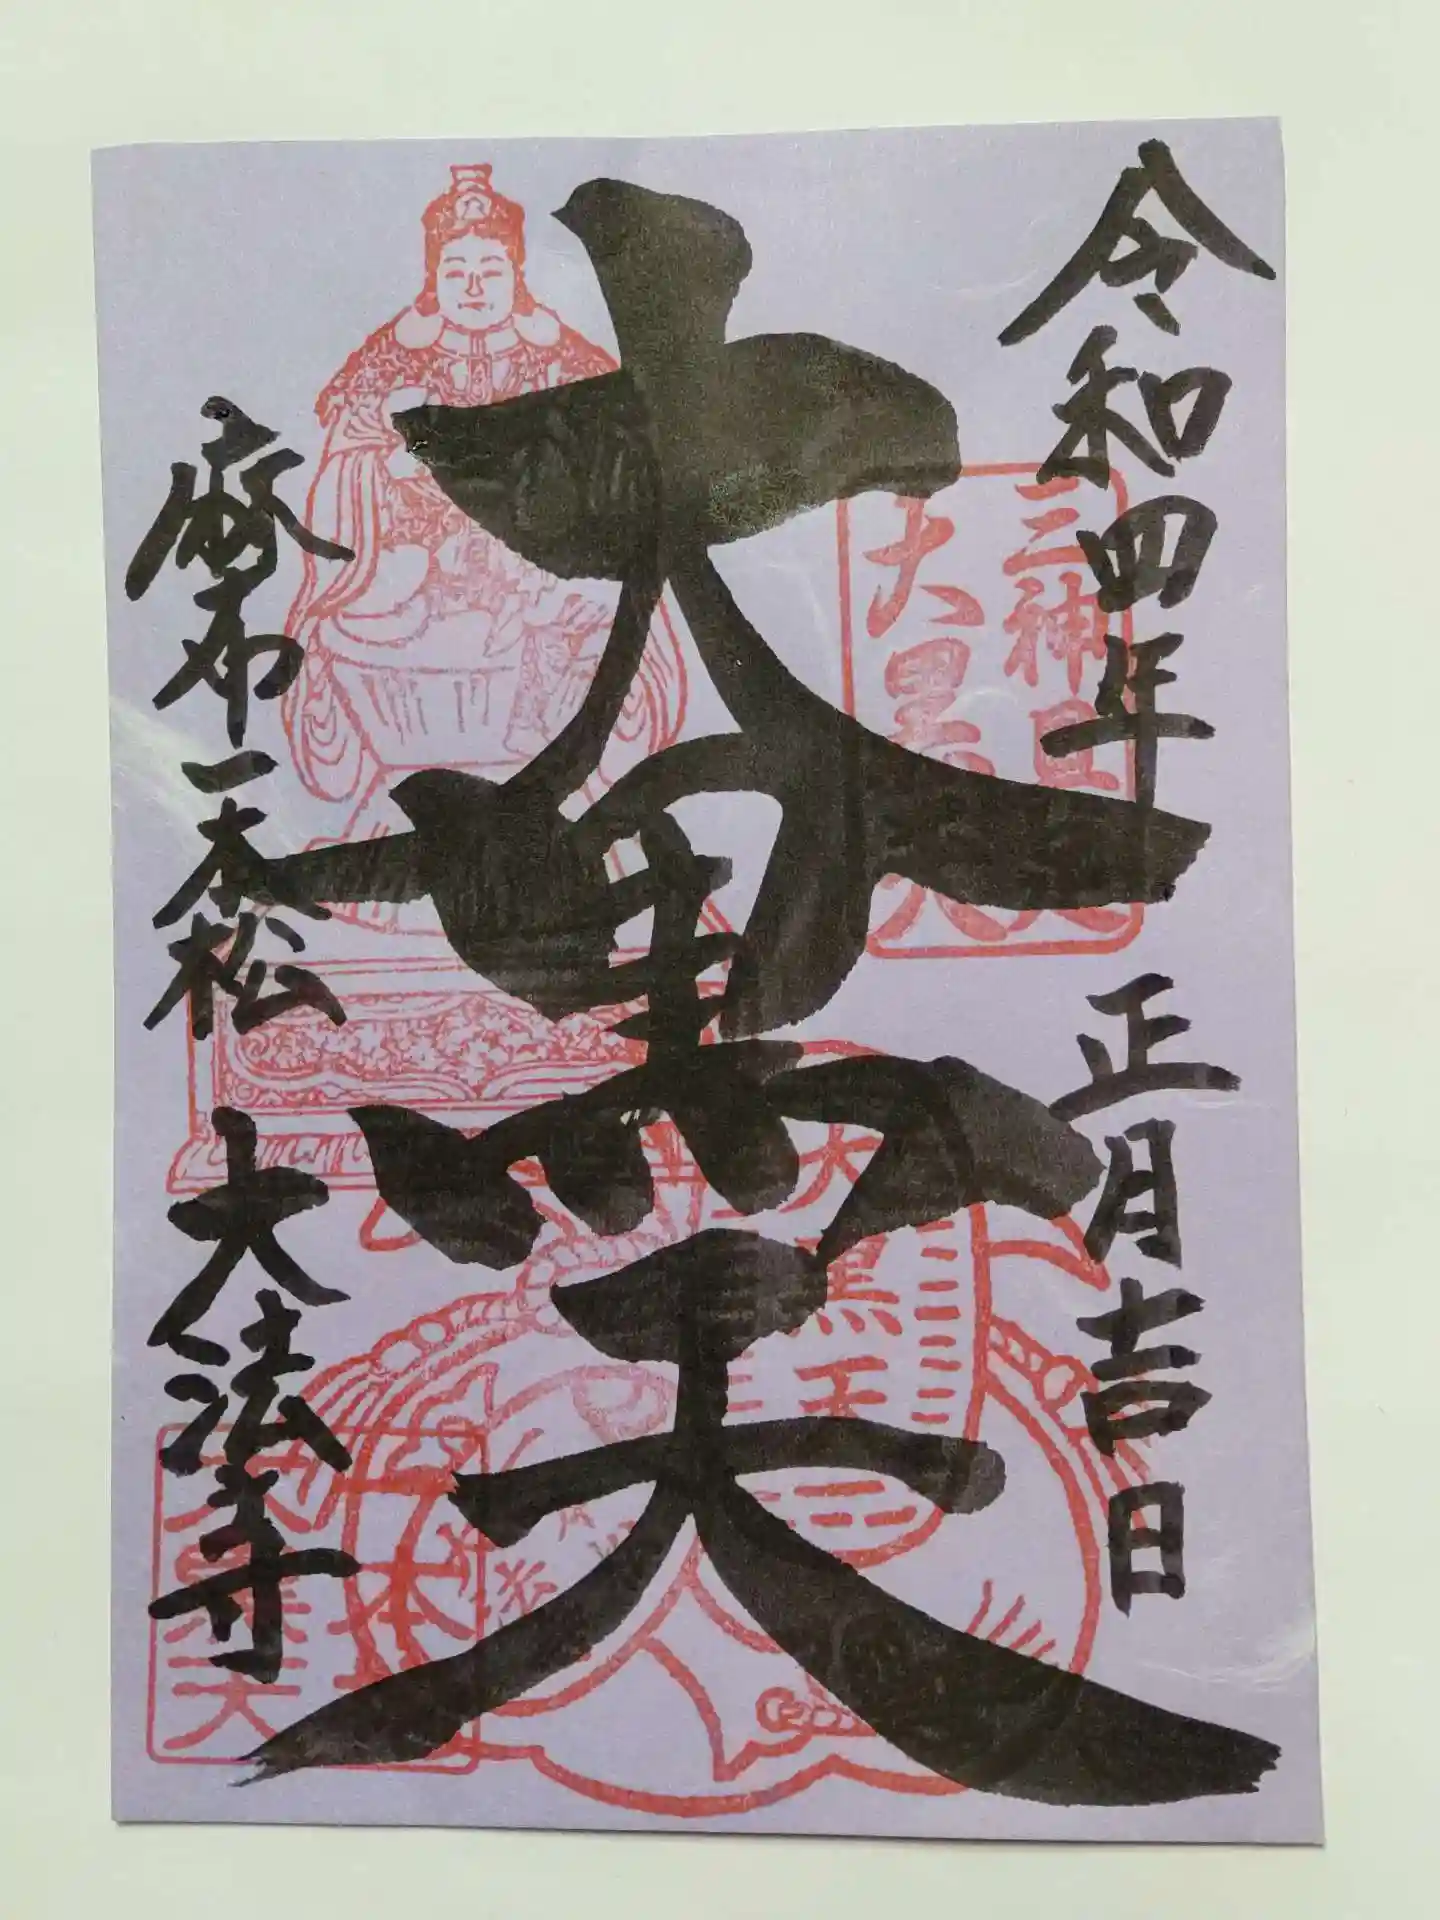 令和四年 正月吉日
三神具
大黒天
大黒天
大黒天
麻布一本松 大法寺